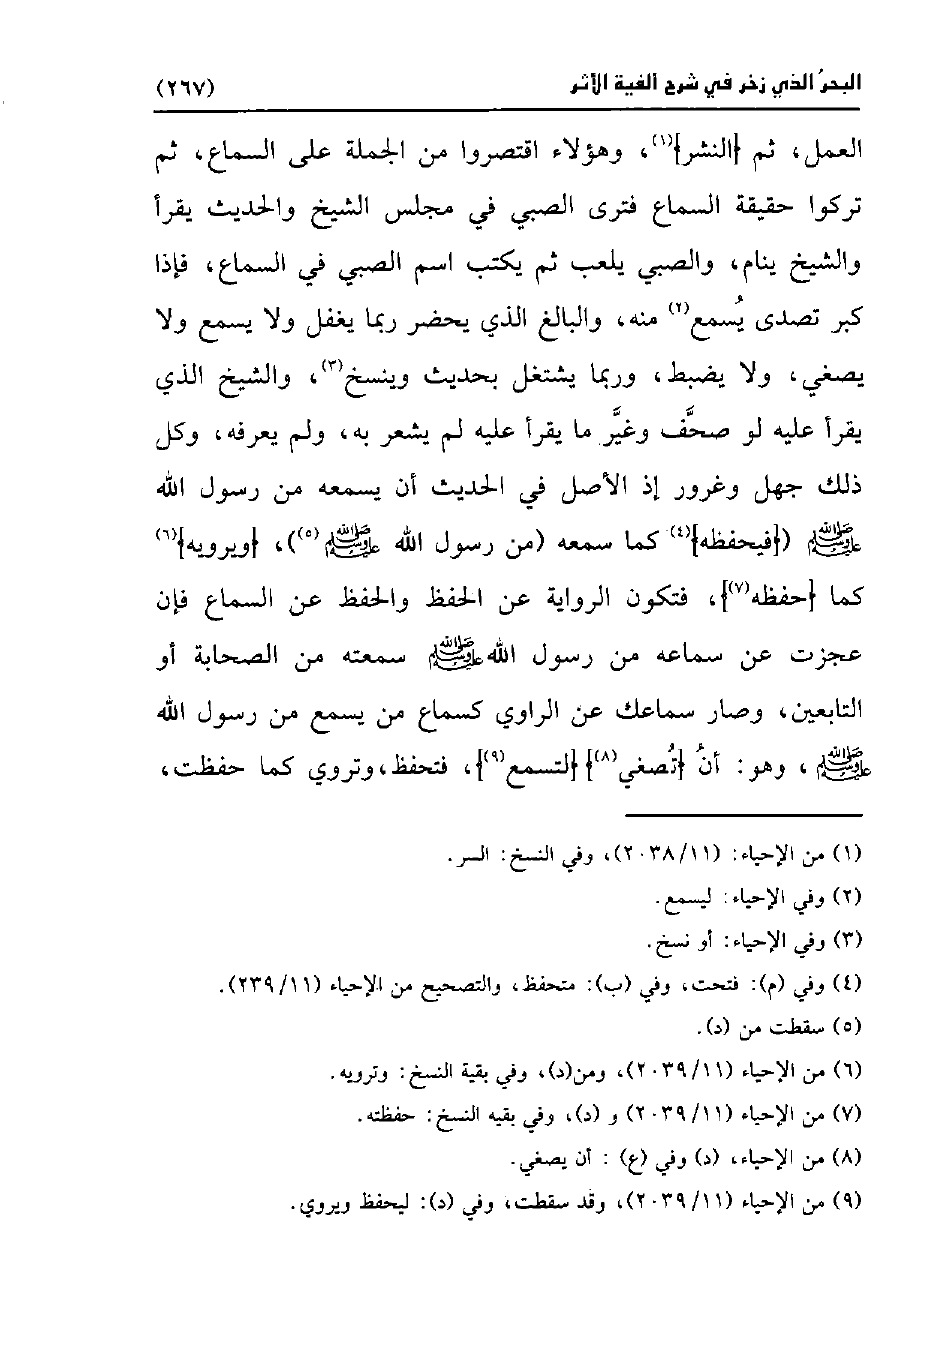 البحرُ الذي زخر في شرح ألفية الأثر (٢٦٧)
العمل، ثم {النشر}(١)، وهؤلاء اقتصروا من الجملة على السماع، ثم
تركوا حقيقة السماع فترى الصبي في مجلس الشيخ والحديث يقرأ
والشيخ ينام، والصبي يلعب ثم يكتب اسم الصبي في السماع، فإذا
كبر تصدى يُسمع(٢) منه، والبالغ الذي يحضر ربما يغفل ولا يسمع ولا
يصغي، ولا يضبط، وربما يشتغل بحديث وينسخ(٣)، والشيخ الذي
يقرأ عليه لو صحَّف وغيَّر ما يقرأ عليه لم يشعر به، ولم يعرفه، وكل
ذلك جهل وغرور إذ الأصل في الحديث أن يسمعه من رسول الله
ﷺ ({فيحفظه}(٤) كما سمعه (من رسول الله ﷺ(٥))، {ويرويه}(٦)
كما {حفظه(٧)}، فتكون الرواية عن الحفظ والحفظ عن السماع فإن
عجزت عن سماعه من رسول الله ﷺ سمعته من الصحابة أو
التابعين، وصار سماعك عن الراوي كسماع من يسمع من رسول الله
ﷺ، وهو: أنْ {تُصغي(٨)} {لتسمع(٩)}، فتحفظ، وتروي كما حفظت،
(١) من الإحياء: (٢٠٣٨/١١)، وفي النسخ: السر.
(٢) وفي الإحياء: ليسمع.
(٣) وفي الإحياء: أو نسخ.
(٤) وفي (م): فتحت، وفي (ب): متحفظ، والتصحيح من الإحياء (٢٣٩/١١).
(٥) سقطت من (د).
(٦) من الإحياء (٢٠٣٩/١١)، ومن(د)، وفي بقية النسخ: وترويه.
(٧) من الإحياء (٢٠٣٩/١١) و (د)، وفي بقيه النسخ: حفظته.
(٨) من الإحياء، (د) وفي (ع) : أن يصغي.
(٩) من الإحياء (٢٠٣٩/١١)، وقد سقطت، وفي (د): ليحفظ ويروي.